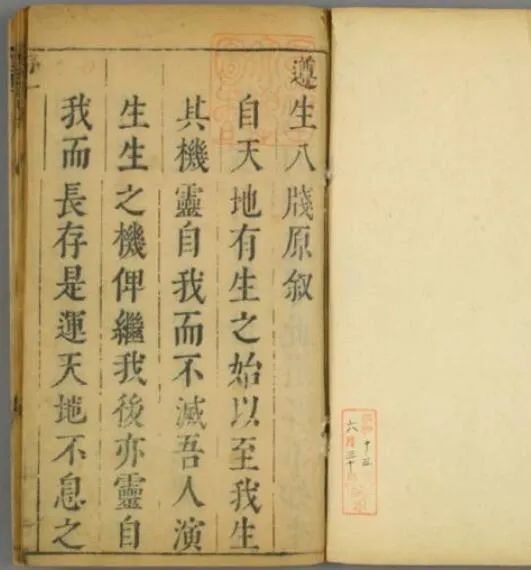 遵生八牋原叙
自天地有生之始以至我生
其機靈自我而不滅吾人演
生生之機俾繼我後亦靈自
我而長存是運天地不息之
十三
六月三十